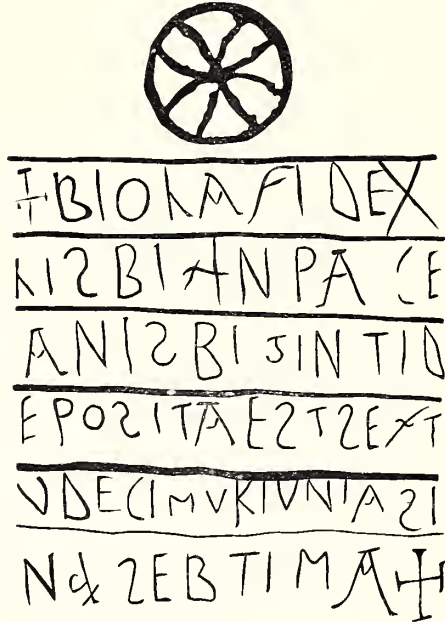 +BIOLAFIDEX
LISBIANPACE
ANISBIJINTID
EPOSITAESTSEXT
VDECIMVKIVNIASI
Nd SEBTIMA+